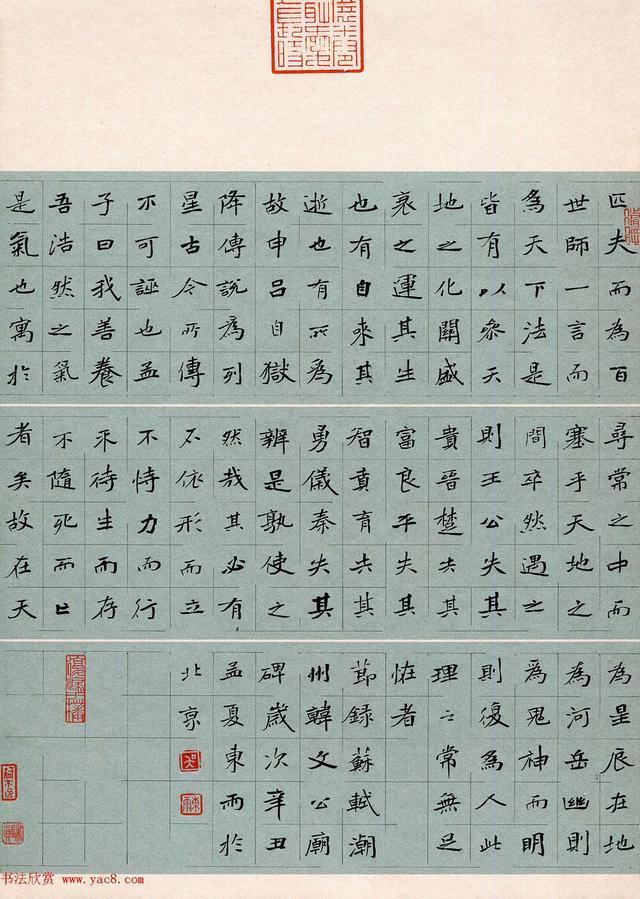 匹夫而為百
世師一言而
為天下法是
皆有以參天
地之化關盛
衰之運其生
也有自來其
逝也有所為
故申呂自獄
降傳說為列
星古今所傳
不可誣也孟
子曰我善養
吾浩然之氣
是氣也寓於
尋常之中而
塞乎天地之
間卒然遇之
則王公失其
貴晉楚失其
富良平失其
智賁育失其
勇儀秦失其
辨是孰使之
然哉其必有
不依形而立
不恃力而行
不待生而存
不隨死而亡
者矣故在天
為星辰在地
為河岳幽則
為鬼神而明
則復為人此
理之常無足
恠者
節錄蘇軾潮
州韓文公廟
碑歲次辛丑
孟夏東雨於
北京
书法欣赏 www.yac8.com